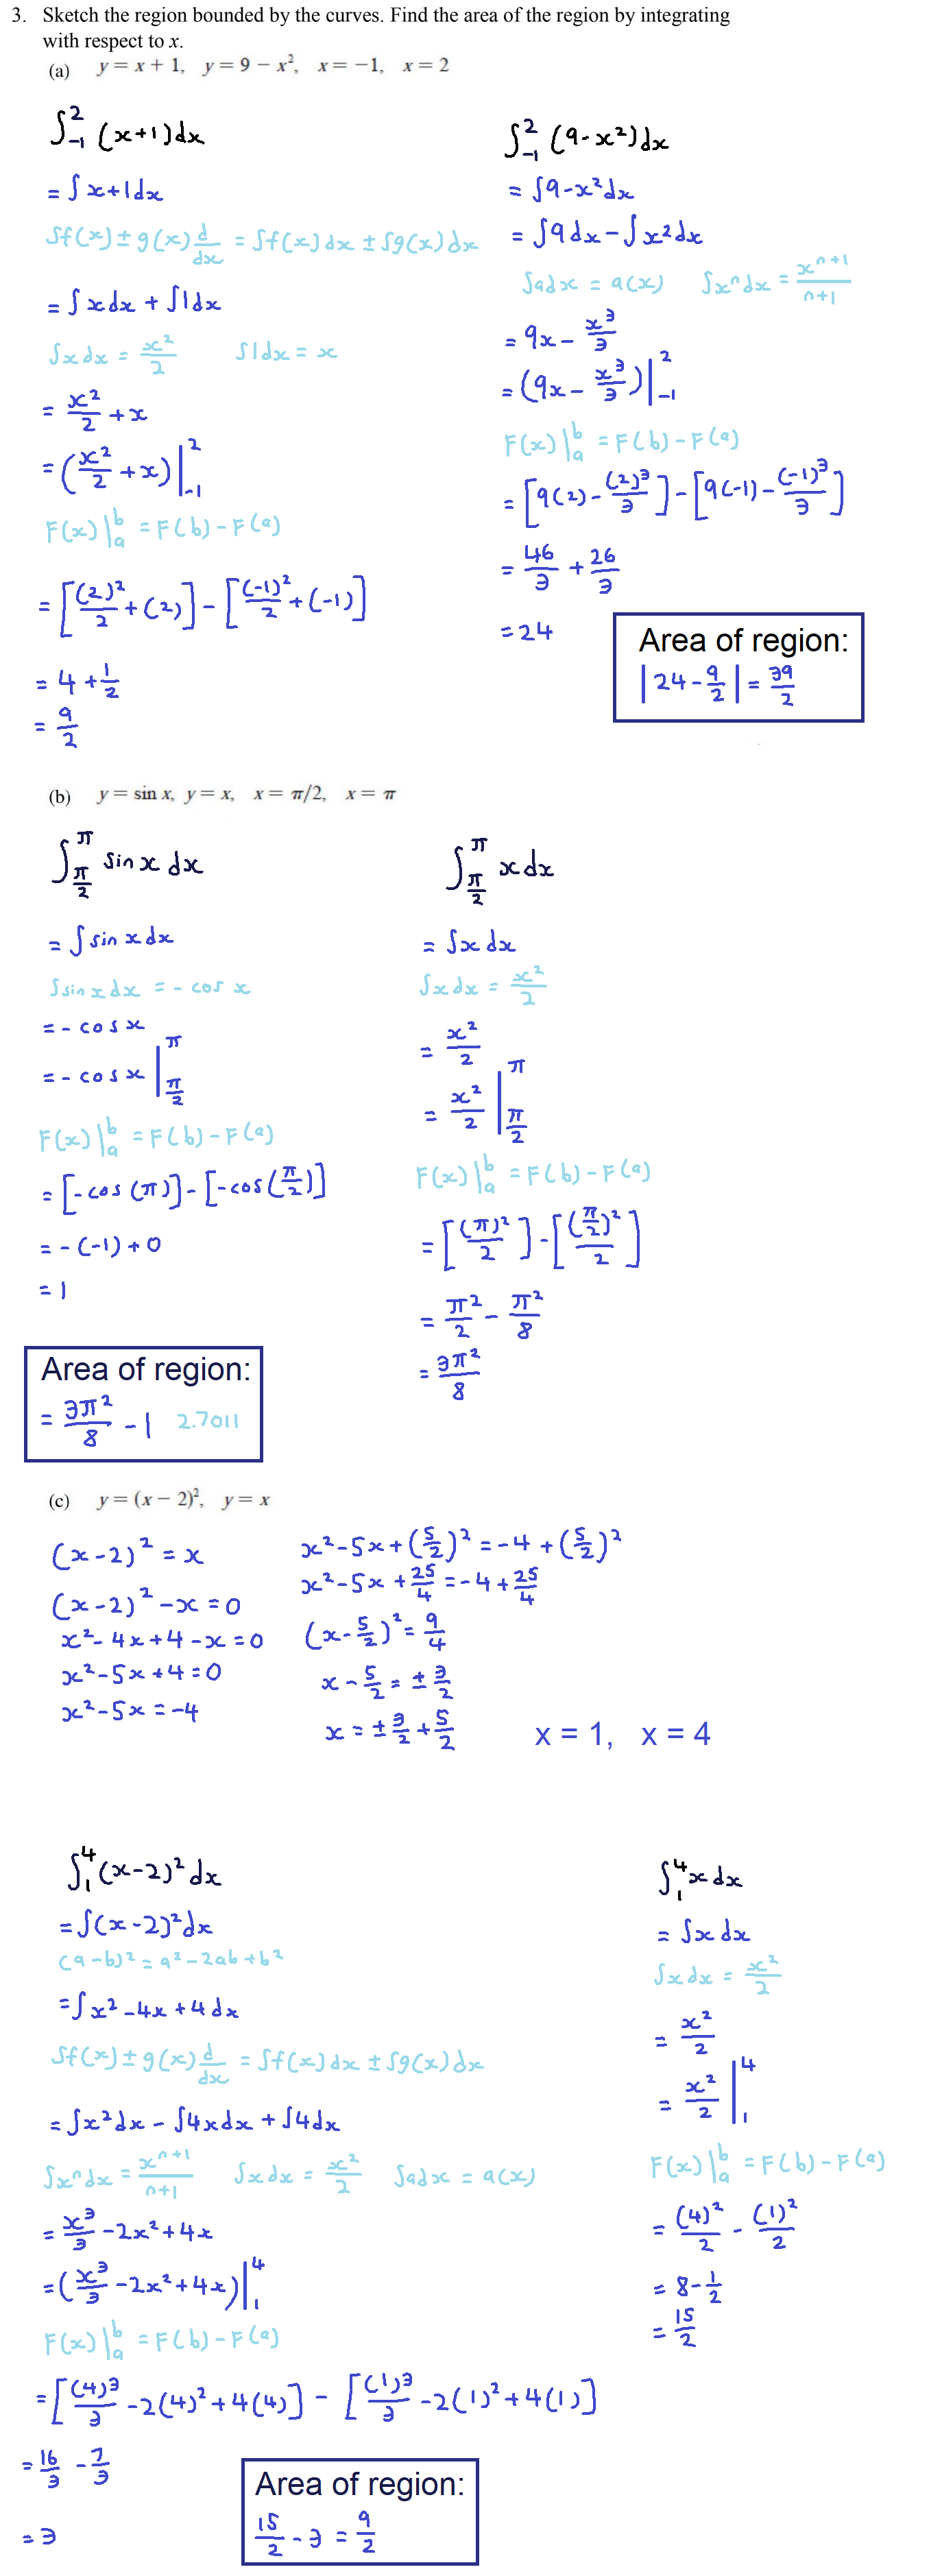 3. Sketch the region bounded by the curves. Find the area of the region by integrating
with respect to x.
(a) y = x + 1, y = 9 − x², x = −1, x = 2
∫₋₁² (x+1)dx
= ∫x+1dx
∫f(x)±g(x) d/dx = ∫f(x)dx ± ∫g(x)dx
= ∫xdx + ∫1dx
∫xdx = x²/2 ∫1dx = x
= x²/2 + x
= (x²/2 + x)|₋₁²
F(x)|ₐᵇ = F(b) - F(a)
= [(2)²/2 + (2)] - [(-1)²/2 + (-1)]
= 4 + 1/2
= 9/2
∫₋₁² (9-x²)dx
= ∫9-x²dx
= ∫9dx - ∫x²dx
∫adx = a(x) ∫xⁿdx = xⁿ⁺¹/n+1
= 9x - x³/3
= (9x - x³/3)|₋₁²
F(x)|ₐᵇ = F(b) - F(a)
= [9(2) - (2)³/3] - [9(-1) - (-1)³/3]
= 46/3 + 26/3
= 24
Area of region:
|24 - 9/2| = 39/2
(b) y = sin x, y = x, x = π/2, x = π
∫_{π/2}^{π} sin x dx
= ∫sin x dx
∫sin x dx = - cos x
= - cos x
= - cos x |_{π/2}^{π}
F(x)|ₐᵇ = F(b) - F(a)
= [-cos(π)] - [-cos(π/2)]
= -(-1) + 0
= 1
∫_{π/2}^{π} x dx
= ∫x dx
∫xdx = x²/2
= x²/2
= x²/2 |_{π/2}^{π}
F(x)|ₐᵇ = F(b) - F(a)
= [(π)²/2] - [(π/2)²/2]
= π²/2 - π²/8
= 3π²/8
Area of region:
= 3π²/8 - 1 2.7011
(c) y = (x − 2)², y = x
(x-2)² = x
(x-2)² - x = 0
x² - 4x + 4 - x = 0
x² - 5x + 4 = 0
x² - 5x = -4
x² - 5x + (5/2)² = -4 + (5/2)²
x² - 5x + 25/4 = -4 + 25/4
(x - 5/2)² = 9/4
x - 5/2 = ± 3/2
x = ± 3/2 + 5/2
x = 1, x = 4
∫₁⁴ (x-2)² dx
= ∫(x-2)²dx
(a-b)² = a² - 2ab + b²
= ∫x² - 4x + 4 dx
∫f(x)±g(x) d/dx = ∫f(x)dx ± ∫g(x)dx
= ∫x²dx - ∫4xdx + ∫4dx
∫xⁿdx = xⁿ⁺¹/n+1 ∫xdx = x²/2 ∫adx = a(x)
= x³/3 - 2x² + 4x
= (x³/3 - 2x² + 4x)|₁⁴
F(x)|ₐᵇ = F(b) - F(a)
= [(4)³/3 - 2(4)² + 4(4)] - [(1)³/3 - 2(1)² + 4(1)]
= 16/3 - 7/3
= 3
∫₁⁴ x dx
= ∫x dx
∫xdx = x²/2
= x²/2
= x²/2 |₁⁴
F(x)|ₐᵇ = F(b) - F(a)
= (4)²/2 - (1)²/2
= 8 - 1/2
= 15/2
Area of region:
15/2 - 3 = 9/2